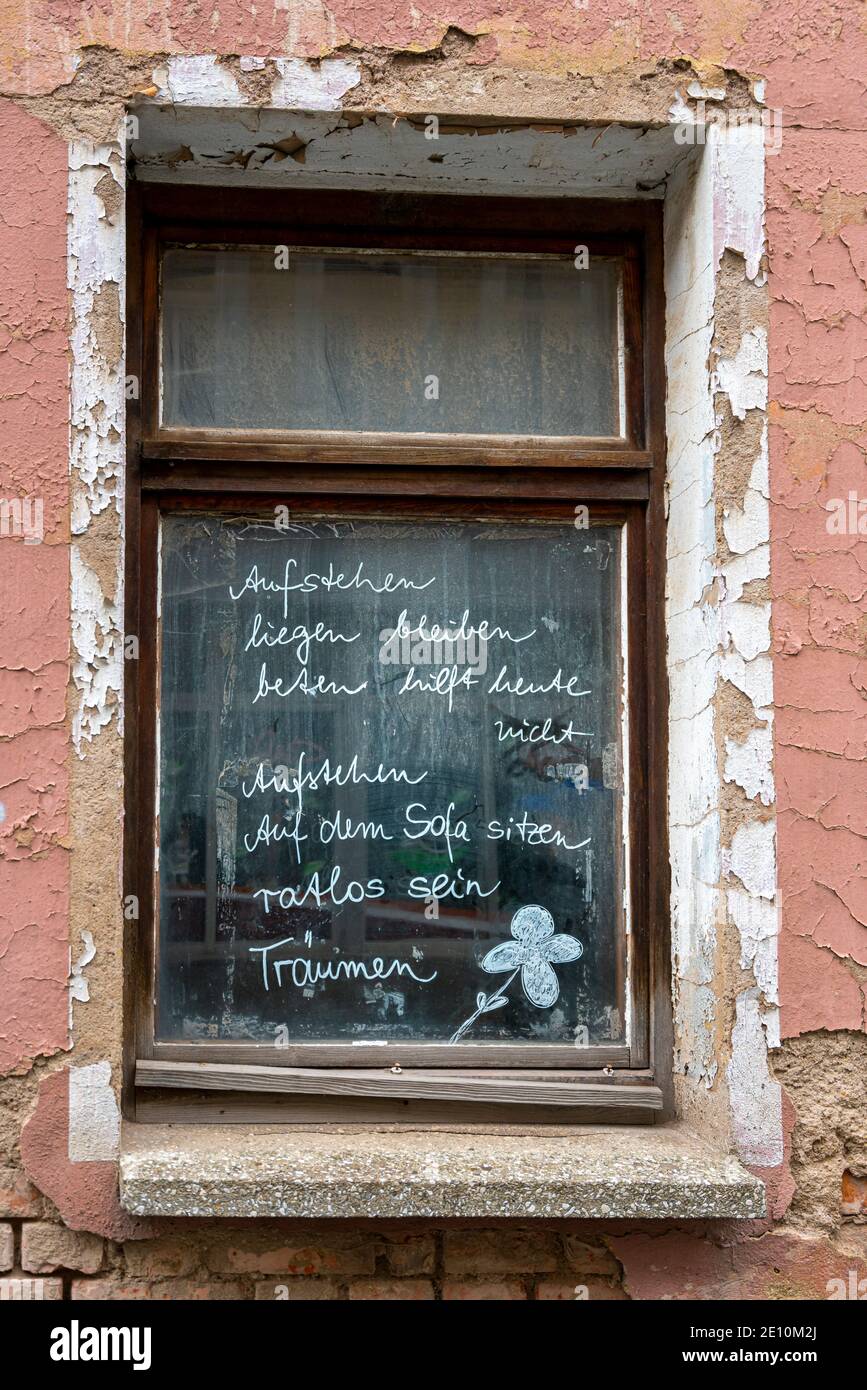 Aufstehen
liegen bleiben
beten hilft heute
nicht
Aufstehen
Auf dem Sofa sitzen
ratlos sein
Träumen
alamy
Image ID: 2E10M2J
www.alamy.com